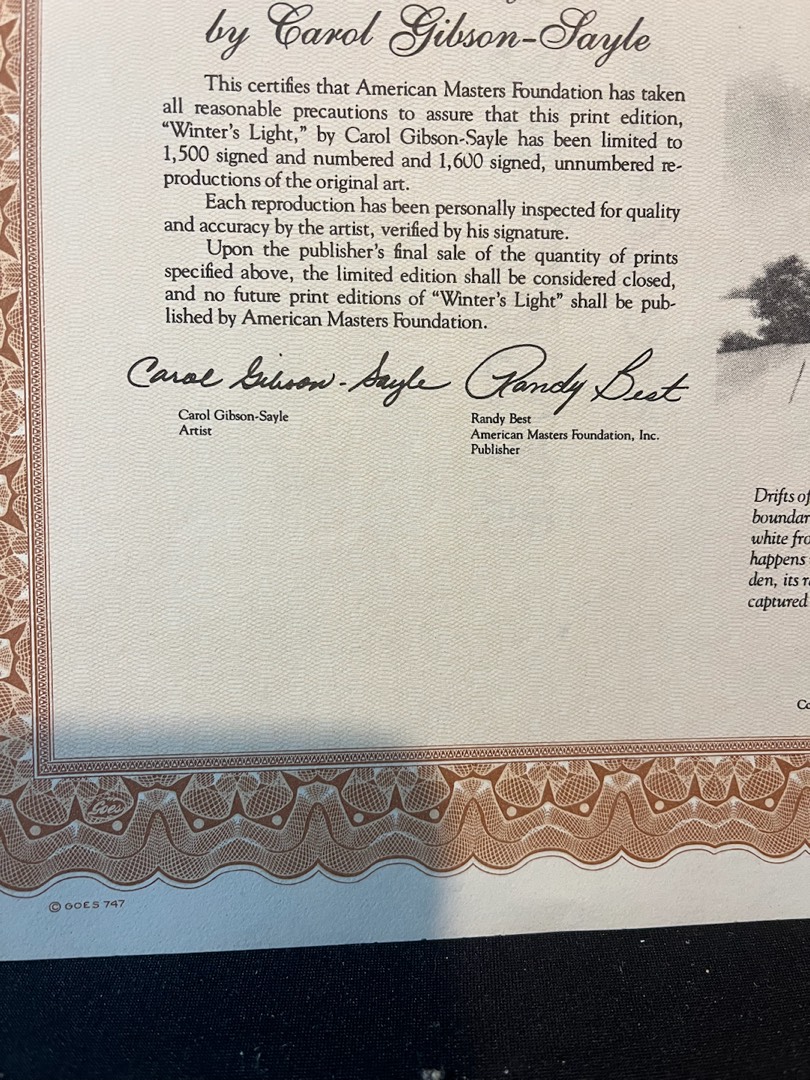 by Carol Gibson-Sayle
This certifies that American Masters Foundation has taken
all reasonable precautions to assure that this print edition,
“Winter’s Light,” by Carol Gibson-Sayle has been limited to
1,500 signed and numbered and 1,600 signed, unnumbered re-
productions of the original art.
Each reproduction has been personally inspected for quality
and accuracy by the artist, verified by his signature.
Upon the publisher’s final sale of the quantity of prints
specified above, the limited edition shall be considered closed,
and no future print editions of “Winter’s Light” shall be pub-
lished by American Masters Foundation.
Carol Gibson-Sayle
Carol Gibson-Sayle
Artist
Randy Best
Randy Best
American Masters Foundation, Inc.
Publisher
Drifts of
boundar
white fro
happens
den, its r
captured
Co
Goes
© GOES 747